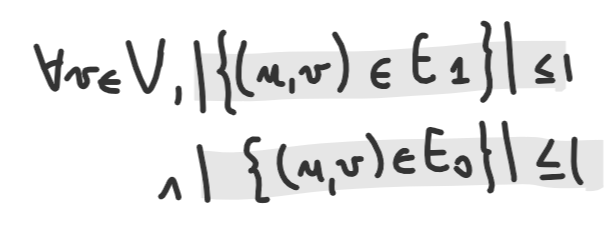 ∀v∈V, |{(u,v) ∈ E1}| ≤ 1
∧ | {(u,v) ∈ E0}| ≤ 1